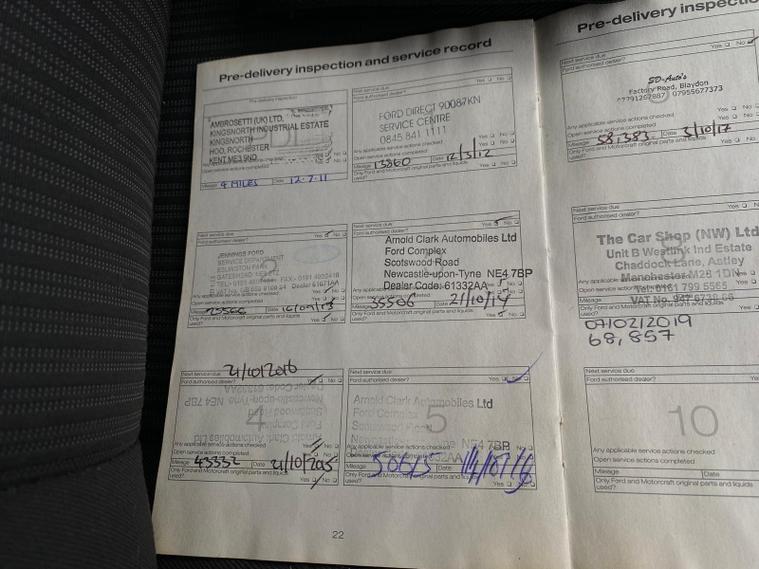 Pre-delivery inspection and service record
Pre-delivery inspection
AMBROSETTI (UK) LTD.
KINGSNORTH INDUSTRIAL ESTATE
KINGSNORTH
HOO, ROCHESTER
KENT ME3 9ND
Mileage 9 MILES Date 12.7.11
Next service due
Ford authorised dealer? Yes No
FORD DIRECT 90087KN
SERVICE CENTRE
0845 841 1111
Any applicable service actions checked Yes No
Open service actions completed Yes No
Mileage 13860 Date 12/3/12
Only Ford and Motorcraft original parts and liquids used? Yes No
Next service due
Ford authorised dealer? Yes No
JENNINGS FORD
SERVICE DEPARTMENT
ESLINGTON PARK
Any applicable service actions checked Yes No
Open service actions completed Yes No
Mileage Date
Only Ford and Motorcraft original parts and liquids used? Yes No
Next service due
Ford authorised dealer? Yes No
Arnold Clark Automobiles Ltd
Ford Complex
Scotswood Road
Newcastle-upon-Tyne NE4 7BP
Dealer Code: 61332AA
Any applicable service actions checked
Open service actions completed
Mileage 35506 Date 21/10/14
Only Ford and Motorcraft original parts and liquids used? Yes No
Next service due 21/10/2016
Ford authorised dealer? Yes No
4
Arnold Clark Automobiles Ltd
Ford Complex
Scotswood Road
Newcastle-upon-Tyne NE4 7BP
Dealer Code: 61332AA
Any applicable service actions checked Yes No
Open service actions completed Yes No
Mileage 43332 Date 21/10/2015
Only Ford and Motorcraft original parts and liquids used? Yes No
Next service due
Ford authorised dealer? Yes No
5
Arnold Clark Automobiles Ltd
Ford Complex
NE4 7BP
Any applicable service actions checked
Open service actions completed
Mileage Date
Only Ford and Motorcraft original parts and liquids used? Yes No
22
Pre-delivery inspectio
Next service due
Ford authorised dealer? Yes No
SD-Auto's
Factory Road, Blaydon
07955677373
Any applicable service actions checked Yes No
Open service actions completed Yes No
Mileage 58,383 Date 3/10/17
Only Ford and Motorcraft original parts and liquids used?
Next service due
The Car Shop (NW) Ltd
Unit B Westlink Ind Estate
Chaddock Lane, Astley
Manchester M28 1DN
Tel: 0161 799 5565
Mileage
Only Ford and Motorcraft original parts and liquids used?
07/02/2019
68,857
Next service due
Ford authorised dealer? Yes
10
Any applicable service actions checked Yes
Open service actions completed Yes
Mileage Date
Only Ford and Motorcraft original parts and liquids used?